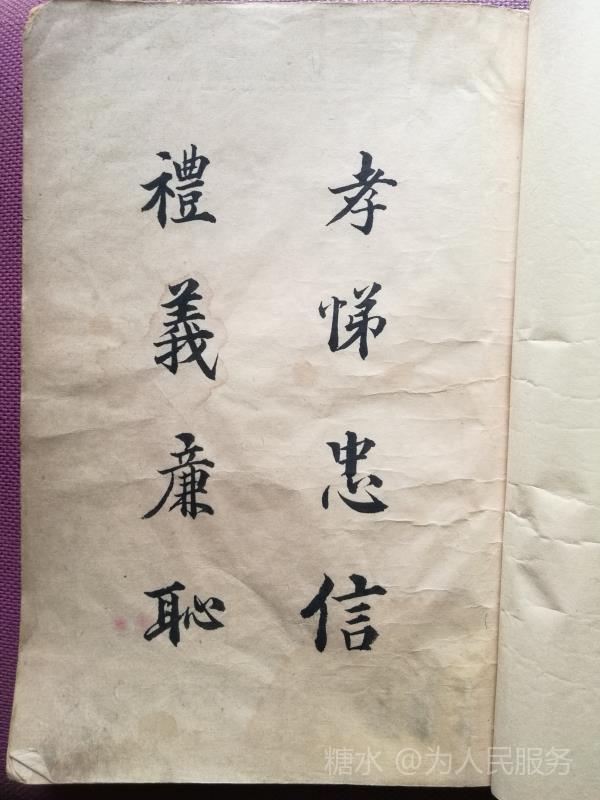 孝悌忠信
禮義廉恥
糖水 @为人民服务